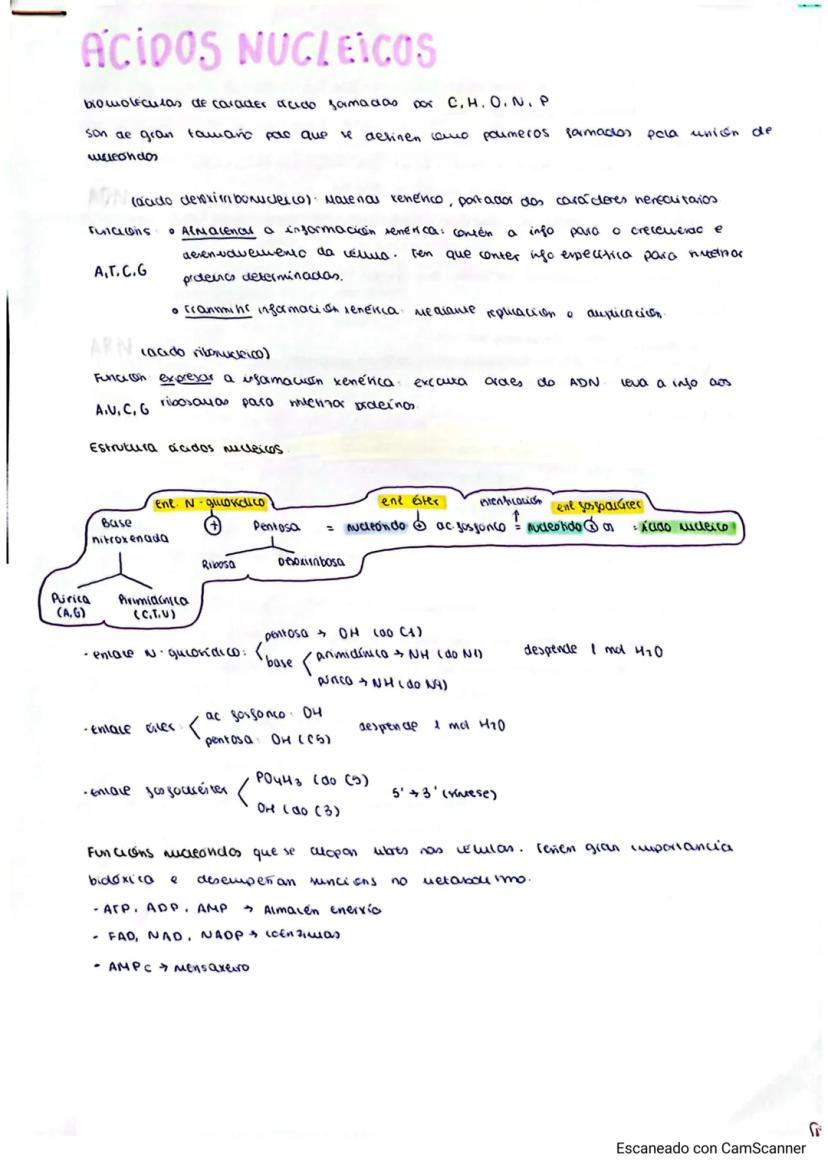 ÁCIDOS NUCLEICOS
biomoléculas de carácter ácido formadas por C, H, O, N, P
son de gran tamaño polo que se definen como polímeros formados pola unión de
nucleótidos
ADN (ácido desoxirribonucleico). Material xenético, portador dos carácteres hereditarios
Funcións • Almacenar a información xenética: contén a info para o crecemento e
desenvolvemento da célula. Ten que conter info específica para sintetizar
A,T,C,G
proteínas determinadas.
• transmitir información xenética mediante replicación o duplicación.
ARN (ácido ribonucleico)
Función expresar a información xenética. executa ordes do ADN leva a info aos
A,U,C,G ribosomas para sintetizar proteínas
Estrutura ácidos nucleicos
enl. N-glucosídico enl éster esterificación enl fosfodiéster
Base nitroxenada + Pentosa = nucleósido + ac. fosfórico = nucleótido x n = ácido nucleico
Ribosa Desoxirribosa
Púrica Pirimidínica
(A,G) (C,T,U)
- enlace N-glucosídico: pentosa → OH (do C1)
base pirimidínica → NH (do N1) desprende 1 mol H2O
púrica → NH (do N9)
- enlace éster ac fosfórico. OH
pentosa. OH (C5) desprende 1 mol H2O
- enlace fosfodiéster PO4H3 (do C5) 5' → 3' (síntese)
OH (do C3)
Funcións nucleótidos que se atopan libres nas células. Teñen gran importancia
biolóxica e desempeñan funcións no metabolismo.
- ATP, ADP, AMP → Almacén enerxía
- FAD, NAD, NADP → coenzimas
- AMPc → mensaxeiro
Escaneado con CamScanner